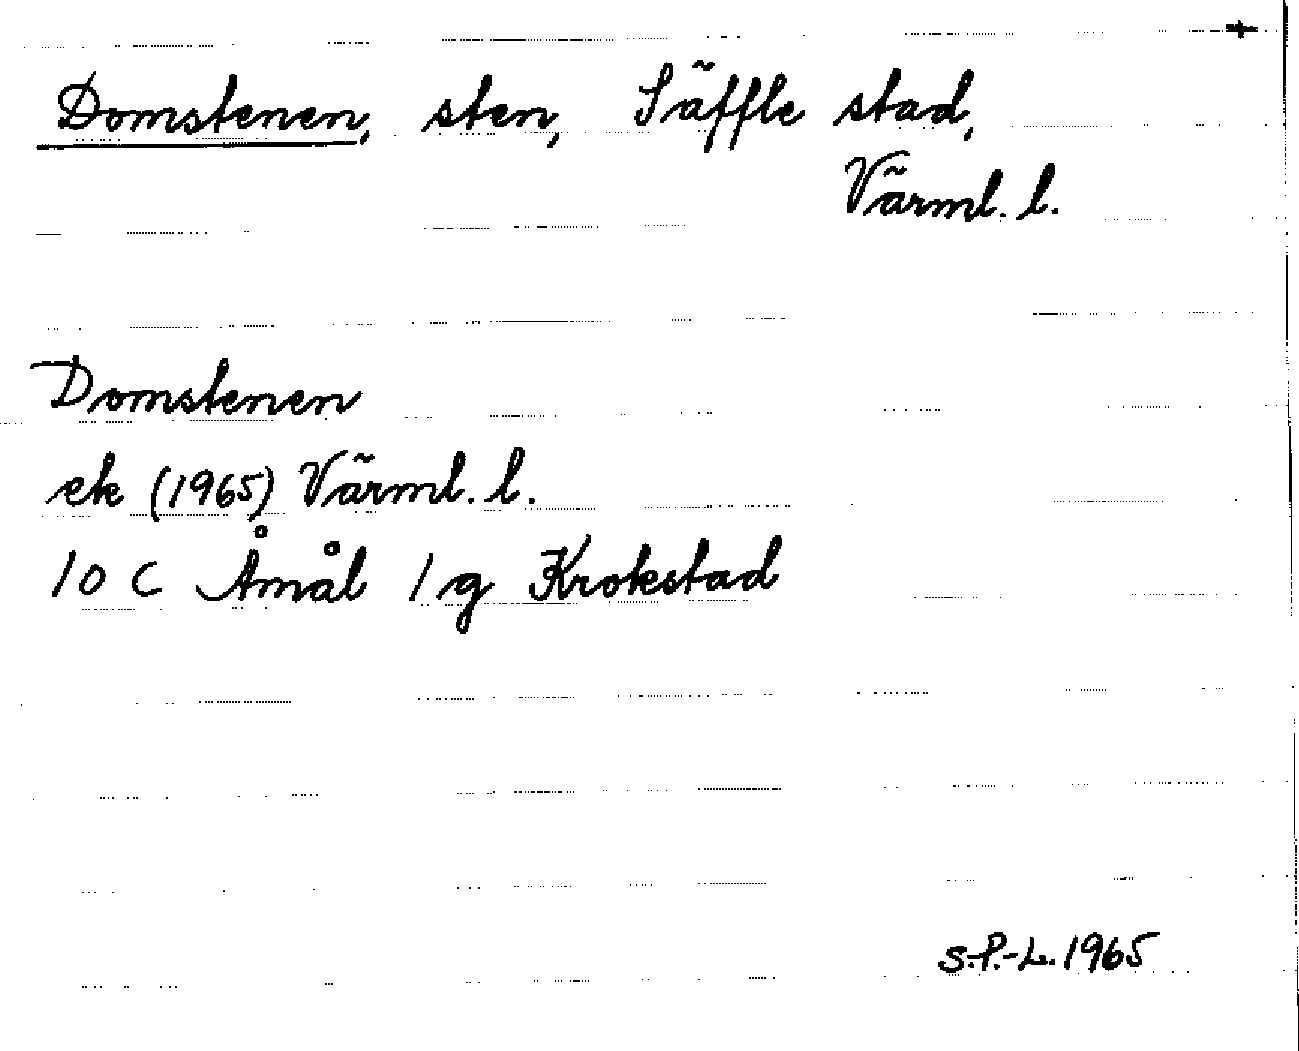 Domstenen, sten, Säffle stad,
Värml. l.
Domstenen
ek (1965) Värml. l.
10 C Åmål 1 g Krokstad
S.P.-L. 1965